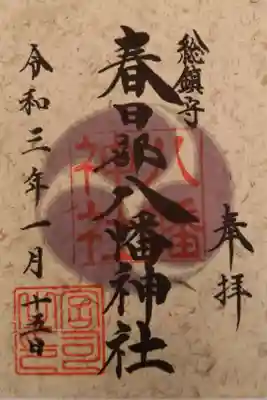 奉拝
総鎮守
春日部八幡神社
八幡神社
令和三年一月十五日